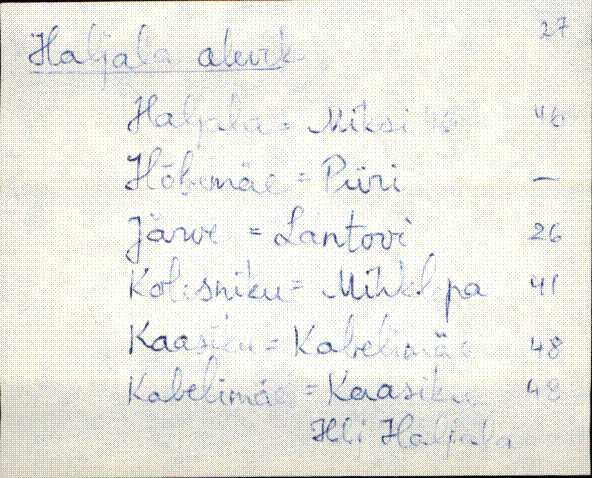 27
Haljala alevik
Haljala = Miksi 46
Hõbemäe = Piiri —
Järve = Lantovi 26
Kolesniku = Mihkli pa 41
Kaasiku = Kabelimäe 48
Kabelimäe = Kaasiku 48
Haljala